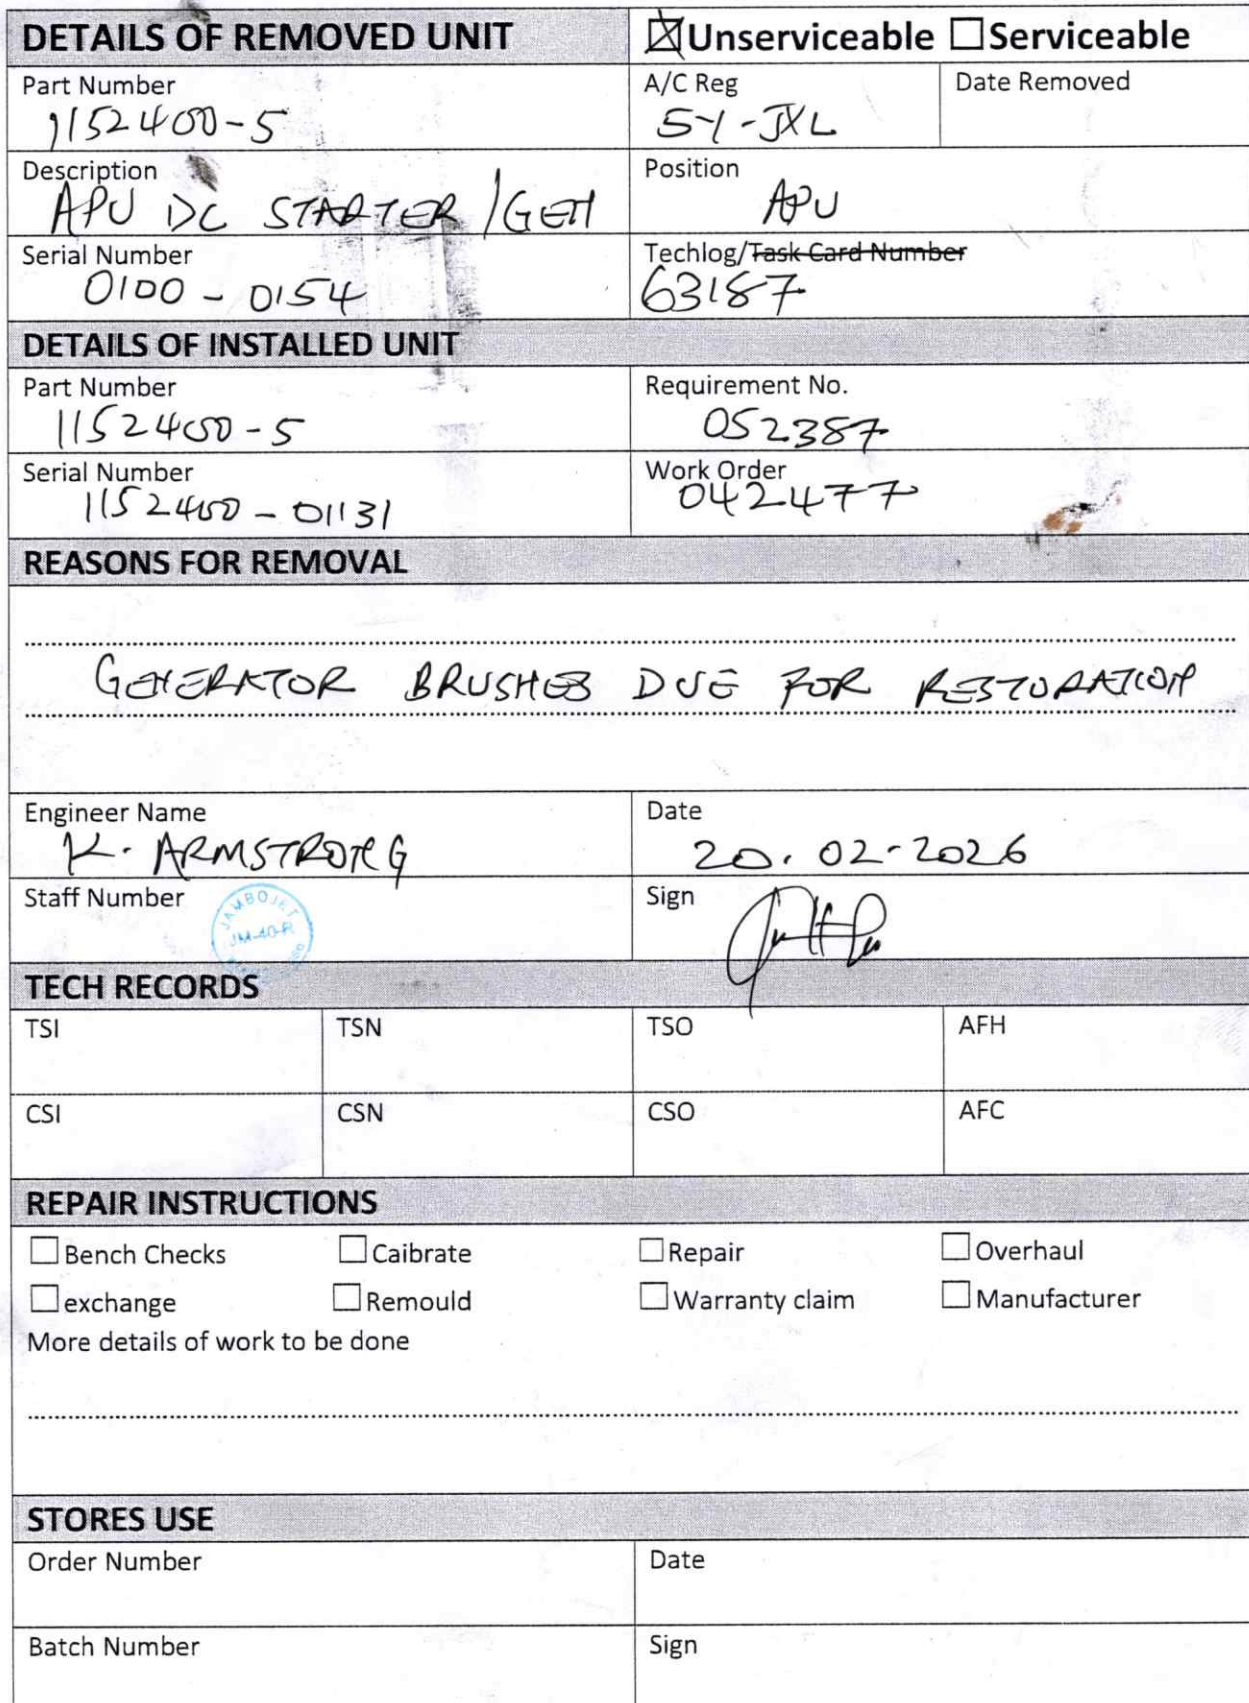 DETAILS OF REMOVED UNIT ☒Unserviceable ☐Serviceable
Part Number A/C Reg Date Removed
1152400-5 5Y-JXL
Description Position
APU DC STARTER/GEN APU
Serial Number Techlog/Task Card Number
0100-0154 63187
DETAILS OF INSTALLED UNIT
Part Number Requirement No.
1152400-5 052387
Serial Number Work Order
1152400-01131 042477
REASONS FOR REMOVAL
GENERATOR BRUSHES DUE FOR RESTORATION
Engineer Name Date
K. ARMSTRONG 20.02-2026
Staff Number Sign
JAMBOJET
JM-40-R
TECH RECORDS
TSI TSN TSO AFH
CSI CSN CSO AFC
REPAIR INSTRUCTIONS
☐Bench Checks ☐Caibrate ☐Repair ☐Overhaul
☐exchange ☐Remould ☐Warranty claim ☐Manufacturer
More details of work to be done
STORES USE
Order Number Date
Batch Number Sign